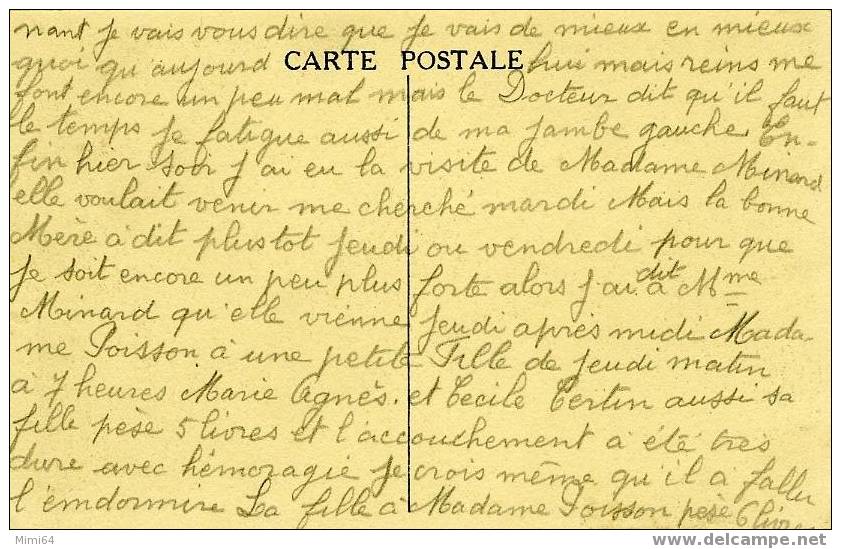 nant je vais vous dire que je vais de mieux en mieux
quoi qu'aujourd CARTE POSTALE hui mais reins me
font encore un peu mal mais le Docteur dit qu'il faut
le temps je fatigue aussi de ma jambe gauche En-
fin hier soir j'ai eu la visite de Madame Minard
elle voulait venir me cherché mardi Mais la bonne
Mère à dit plustot jeudi ou vendredi pour que
je soit encore un peu plus forte alors j'ai dit à Mme
Minard qu'elle vienne jeudi après midi Mada-
me Poisson à une petite Fille de jeudi matin
à 7 heures Marie Agnès. et Cecile Tertin aussi sa
fille pèse 5 livres et l'accouchement a été très
dure avec hémoragie je crois même qu'il a fallu
l'emdormire La fille à Madame Poisson pèse 6 livres
Mimi64
delcampe.net